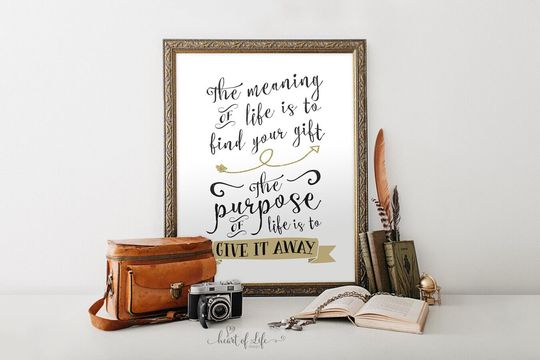 The meaning
OF life is to
find your gift
The
purpose
OF life is to
GIVE IT AWAY
heart of Life